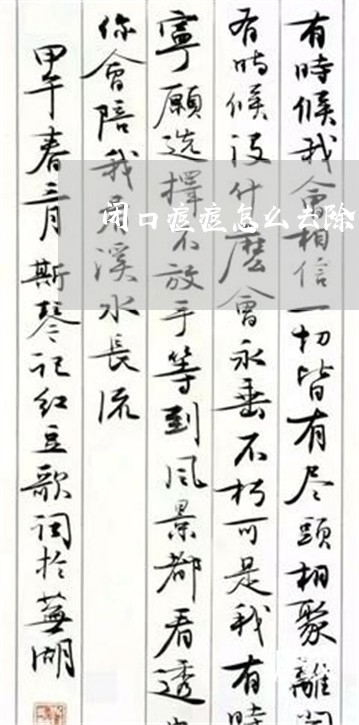 有時候我會相信一切皆有尽頭相聚離
有時候没什麼會永垂不朽可是我有時
寧願选擇不放手等到风景都看透
你會陪我看溪水長流
甲午春三月斯琴记红豆歌词於蕪湖
闭口痘痘怎么去除